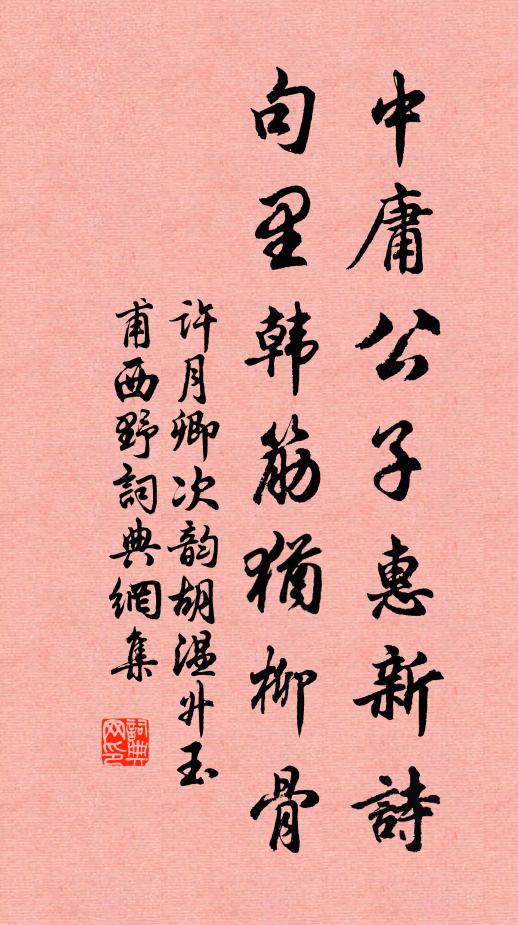 中庸公子惠新詩
句里韩筋猶柳骨
许月卿次韵胡温升玉
甫西野詞典網集
詞典網印